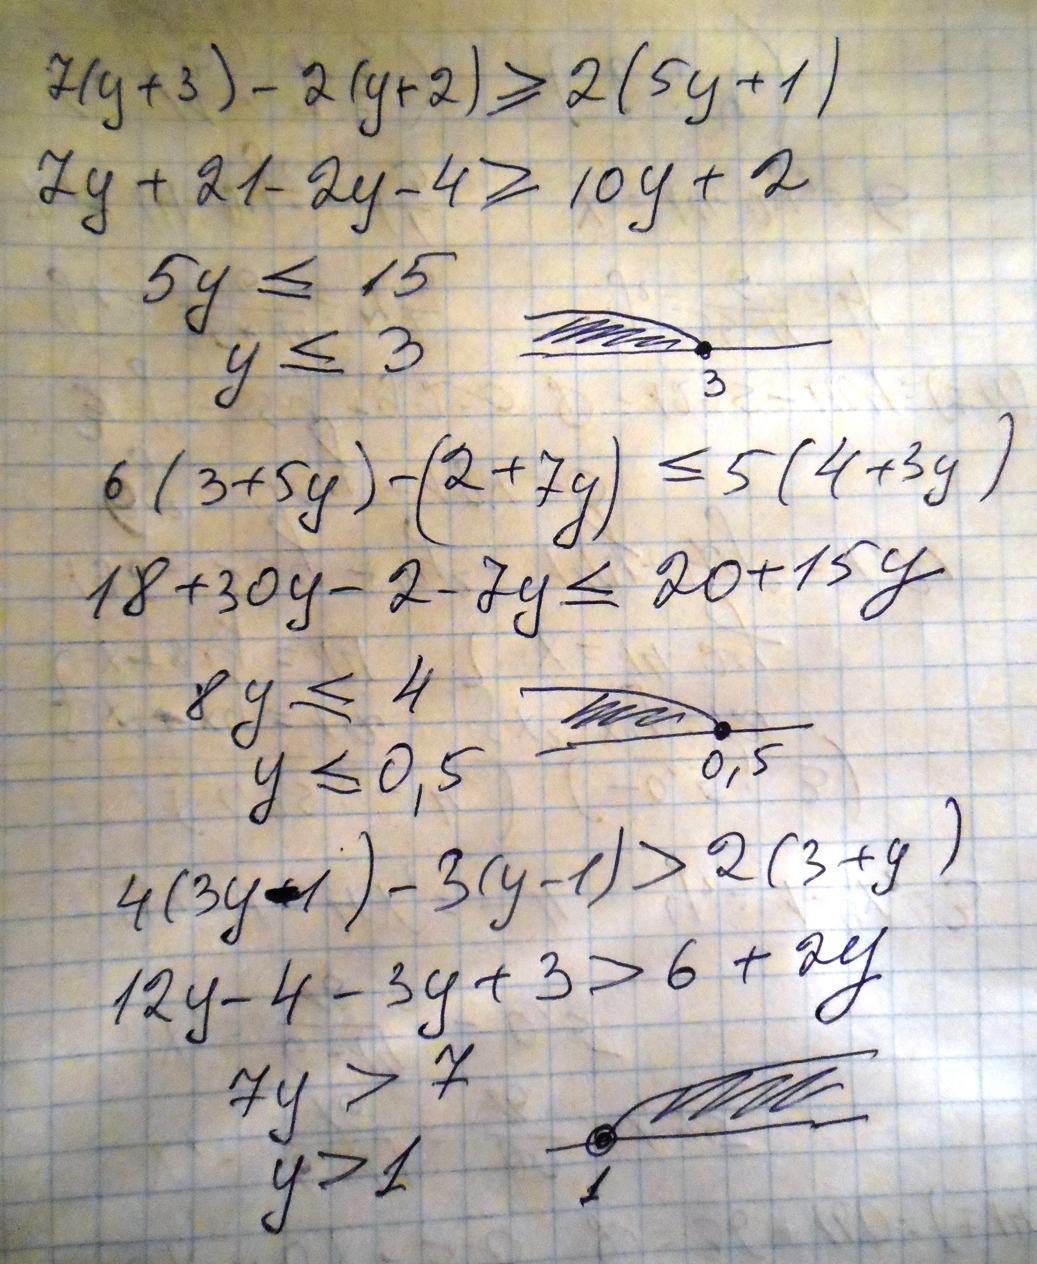 7(y+3)-2(y+2)≥2(5y+1)
7y+21-2y-4≥10y+2
5y≤15
y≤3
3
6(3+5y)-(2+7y)≤5(4+3y)
18+30y-2-7y≤20+15y
8y≤4
y≤0,5
0,5
4(3y-1)-3(y-1)>2(3+y)
12y-4-3y+3>6+2y
7y>7
y>1
1